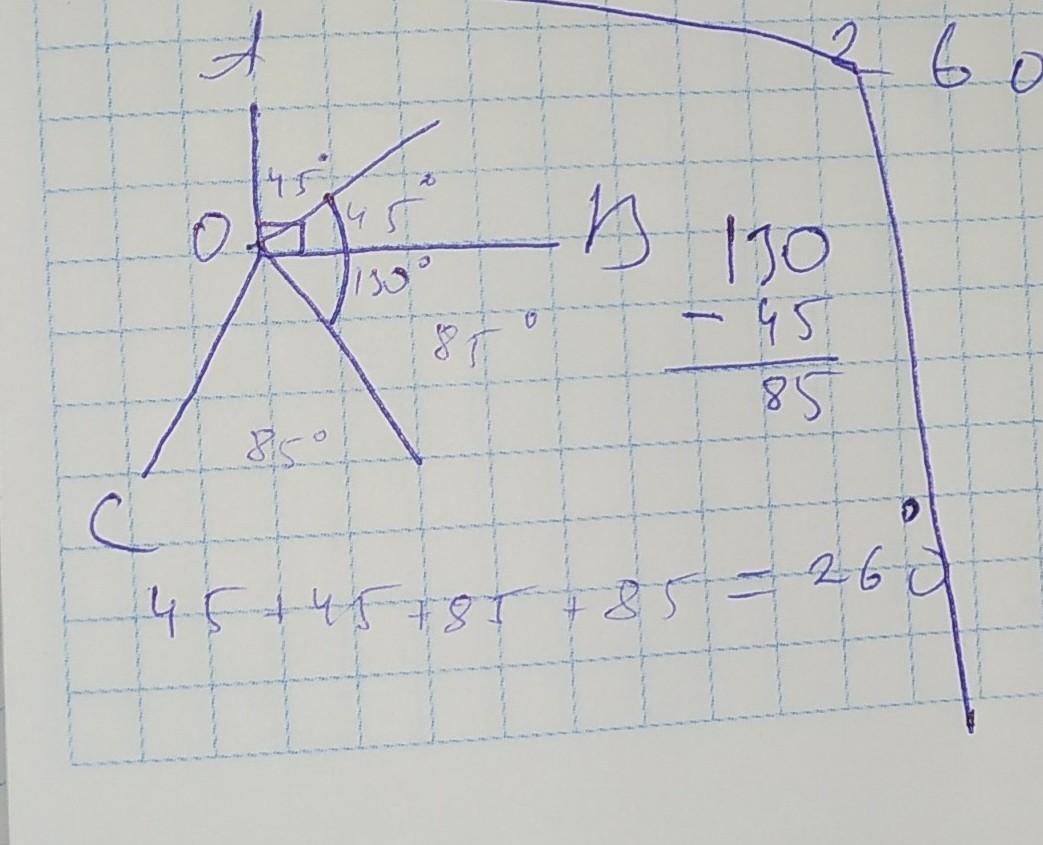 A
2 6 0
45°
O
45°
B
130
130°
- 45
85°
85
85°
C
45+45+85+85=260°